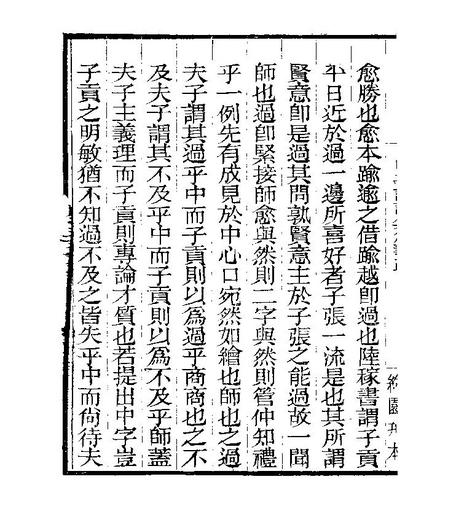 愈勝也愈本踰逾之借踰越卽過也陸稼書謂子貢
平日近於過一邊所喜好者子張一流是也其所謂
賢意卽是過其問孰賢意主於子張之能過故一聞
師也過卽緊接師愈與然則二字與然則管仲知禮
乎一例先有成見於中心口宛然如繪也師也之過
夫子謂其過乎中而子貢則以爲過乎商商也之不
及夫子謂其不及乎中而子貢則以爲不及乎師蓋
夫子主義理而子貢則專論才質也若提出中字豈
子貢之明敏猶不知過不及之皆失乎中而尙待夫